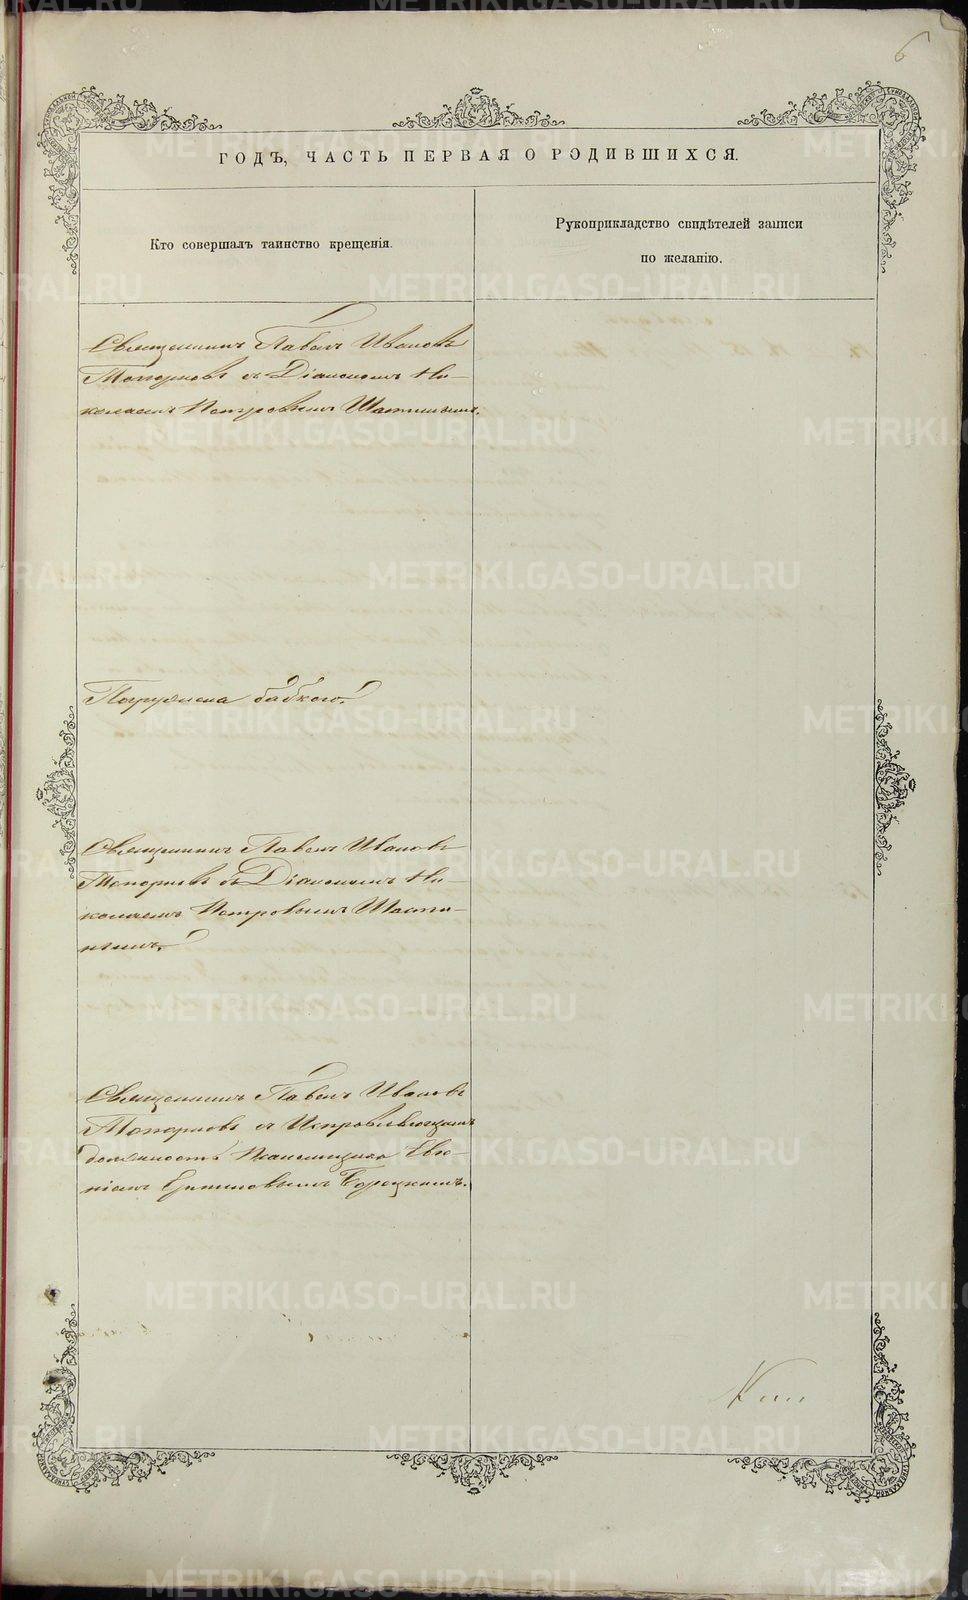 6
ГОДЪ, ЧАСТЬ ПЕРВАЯ О РОДИВШИХСЯ.
Кто совершалъ таинство крещенія.
Рукоприкладство свидѣтелей записи
по желанію.
Священникъ Павелъ Ивановъ
Топорковъ съ Діакономъ Ни-
колаемъ Петровымъ
Погружена бабкою.
Священникъ Павелъ Ивановъ
Топорковъ съ Діакономъ Ни-
колаемъ Петровымъ
Священникъ Павелъ Ивановъ
Топорковъ съ Исправляющимъ
должность Псаломщика Евге-
ніемъ
METRIKI.GASO-URAL.RU